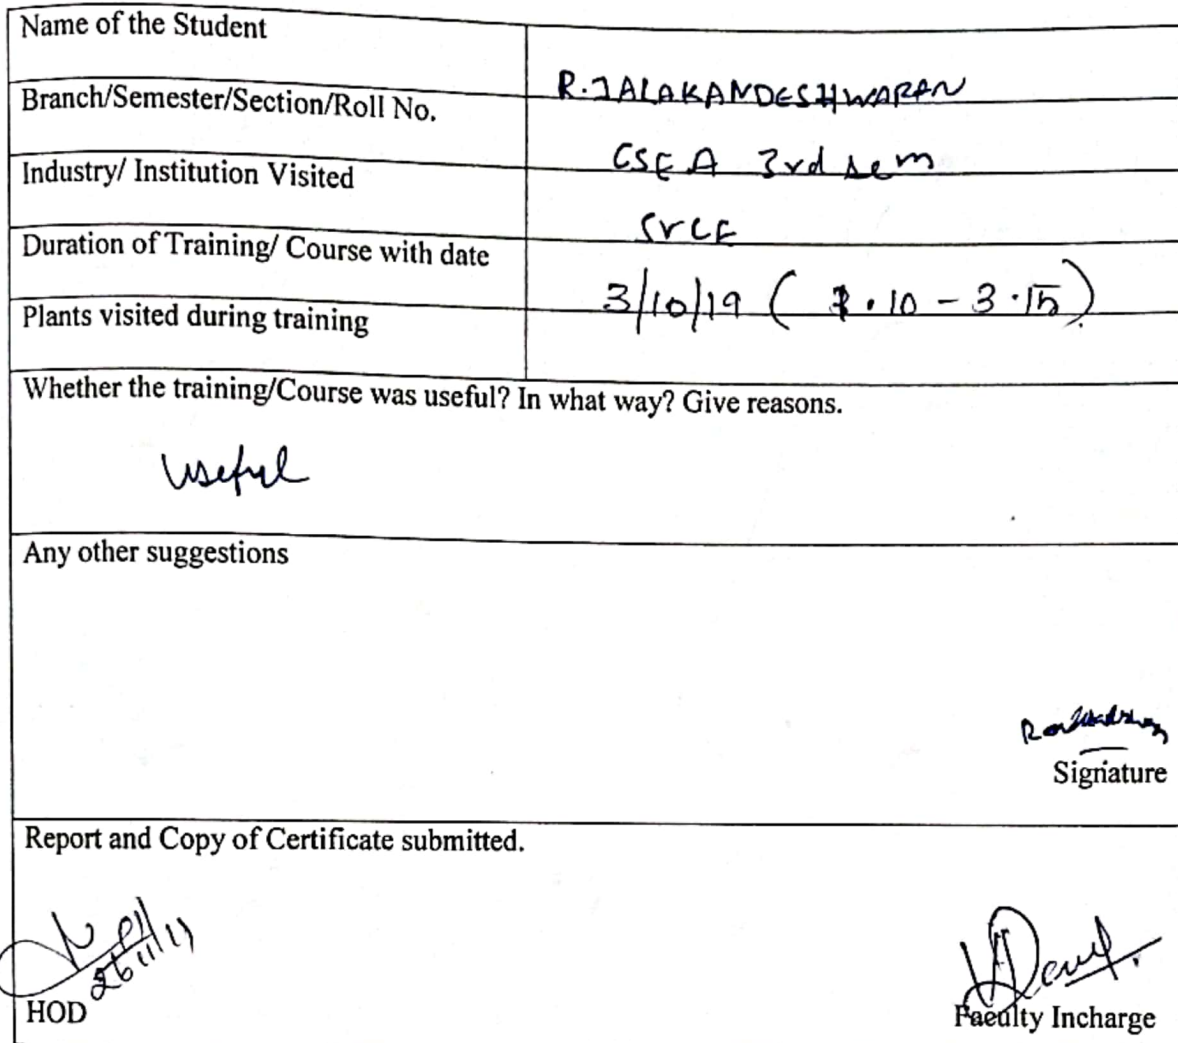 Name of the Student
R.JALAKANDESHWARAN
Branch/Semester/Section/Roll No.
CSE A 3rd sem
Industry/ Institution Visited
SVCE
Duration of Training/ Course with date
3/10/19 ( 1.10 - 3.15)
Plants visited during training
Whether the training/Course was useful? In what way? Give reasons.
Useful
Any other suggestions
Signature
Report and Copy of Certificate submitted.
HOD
Faculty Incharge